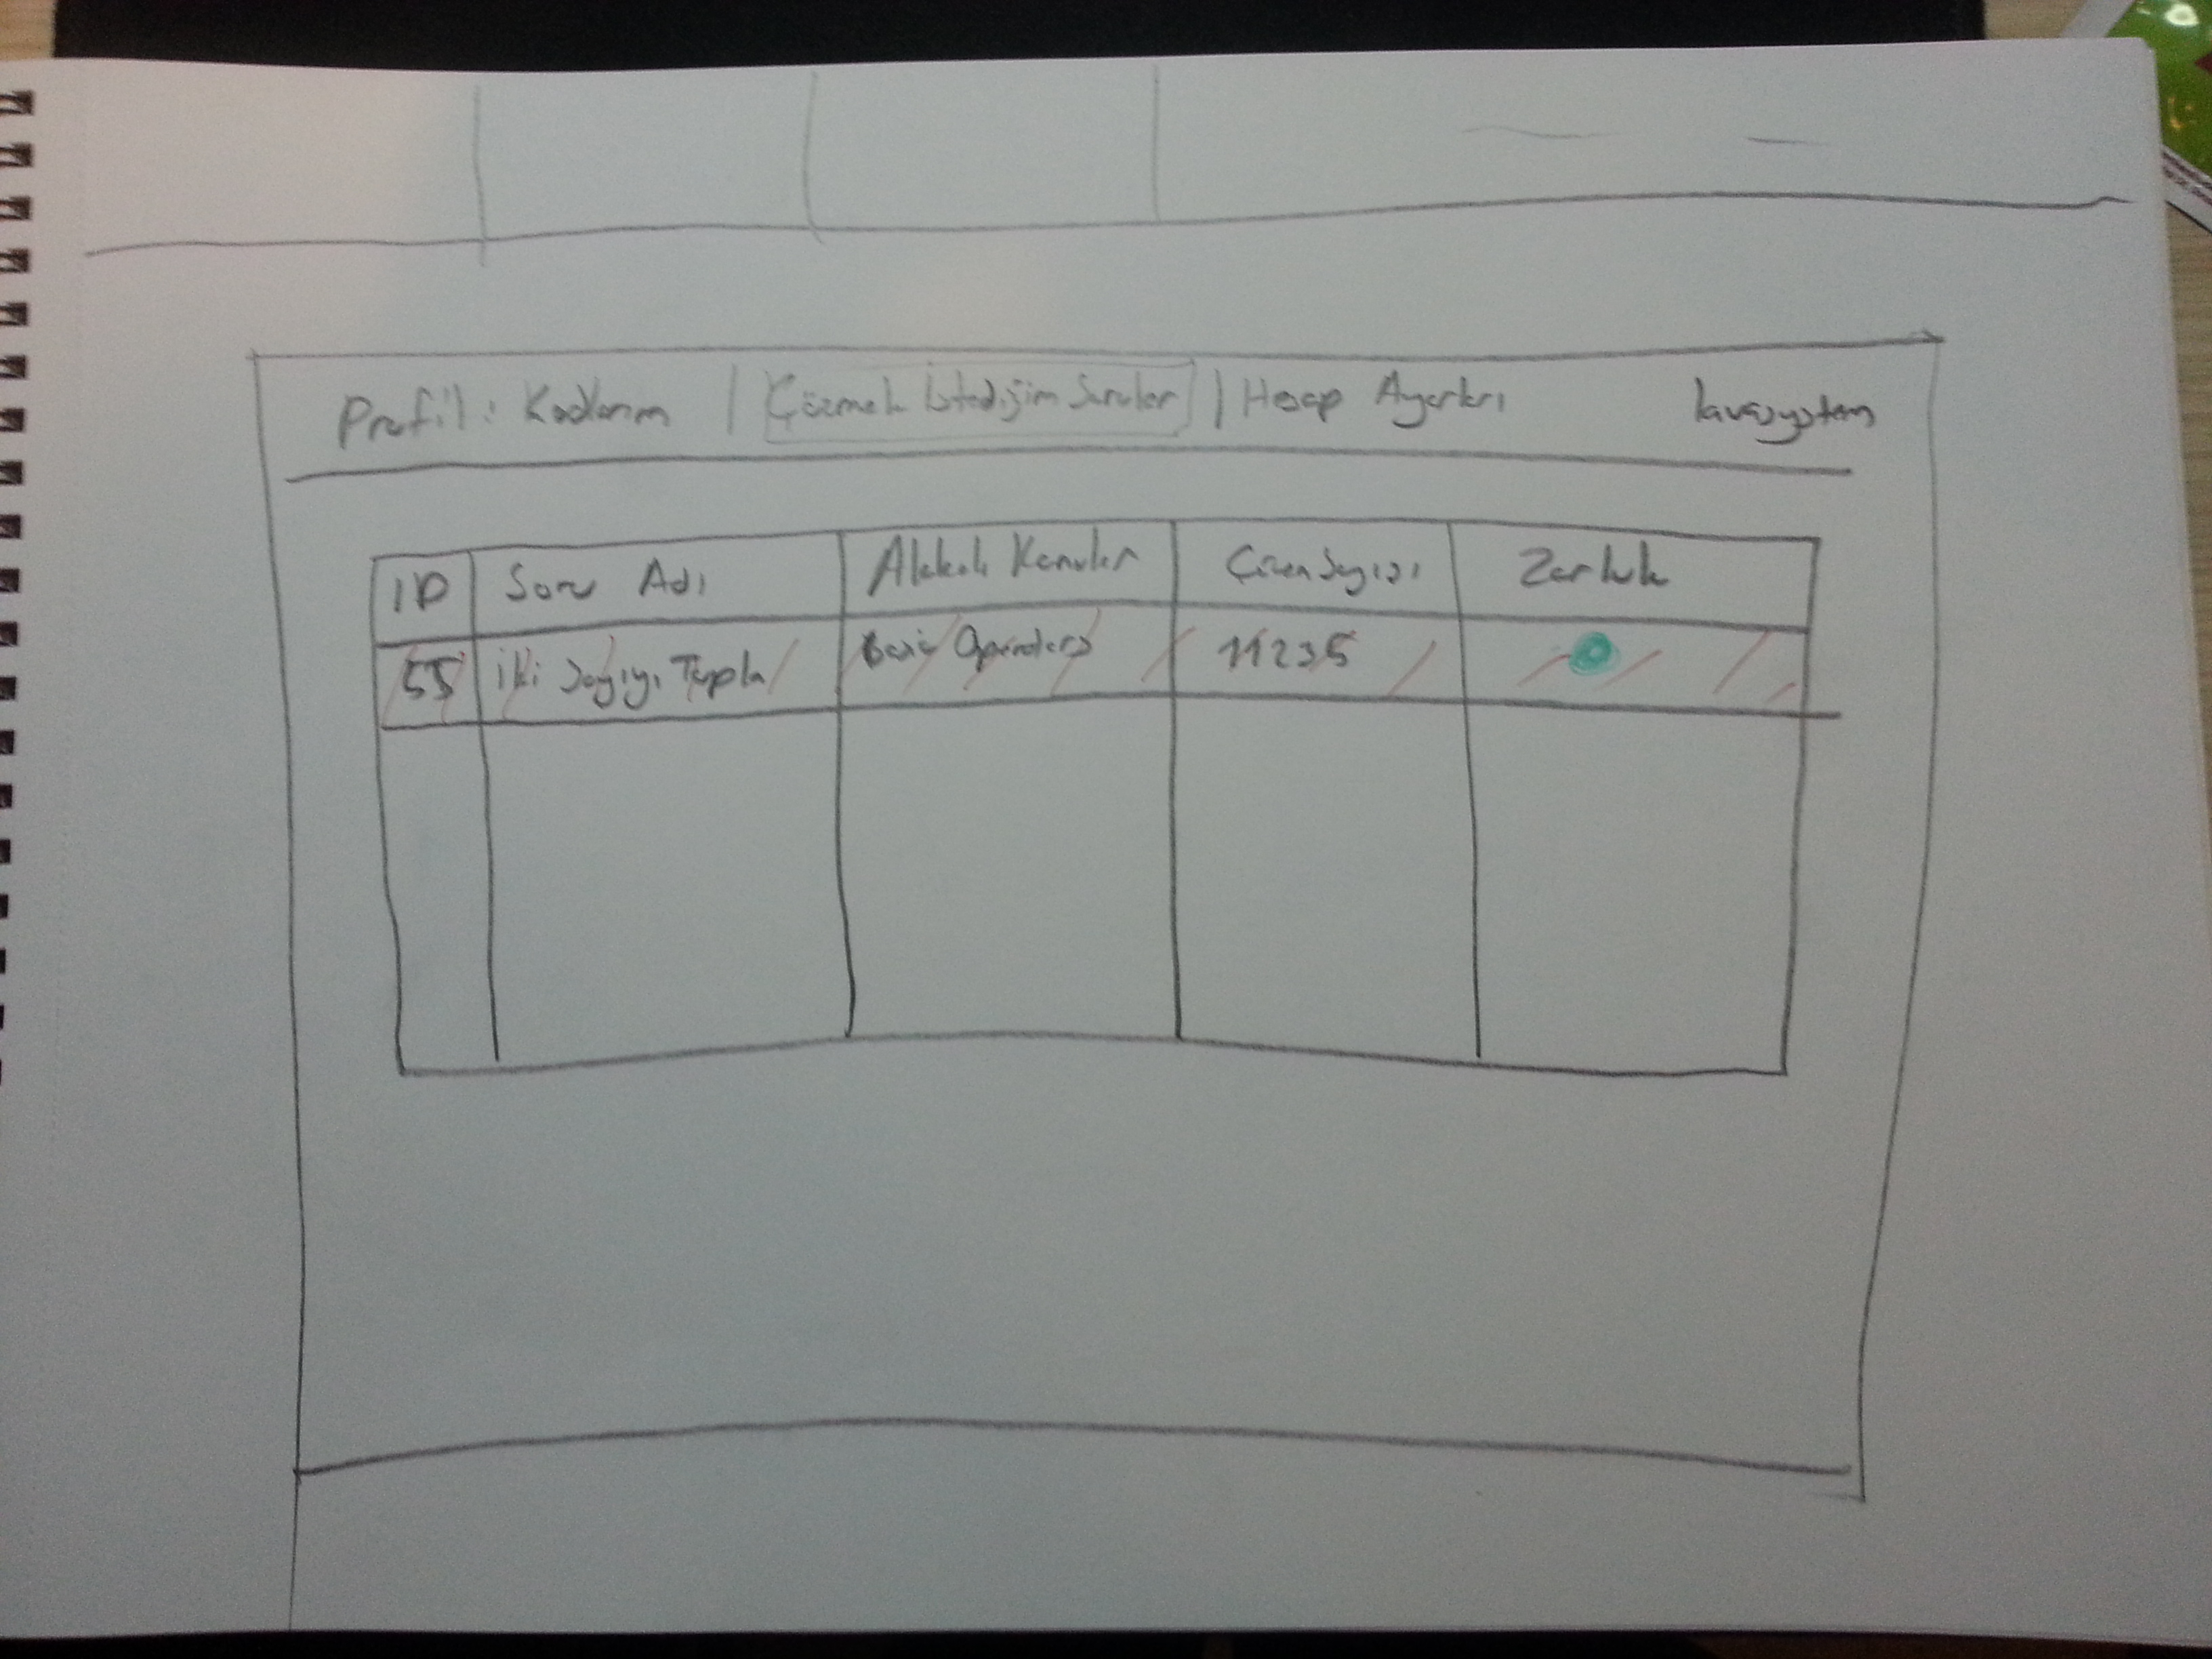 Profil : Kodlarım | Çözmek İstediğim Sorular | Hesap Ayarları
ID Soru Adı Alakalı Konular Çözen Sayısı Zorluk
55 İki Sayıyı Topla Basic Operators 11235